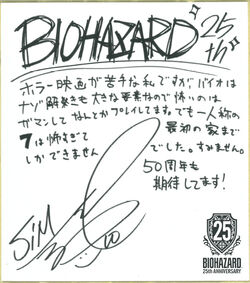 BIOHAZARD 25th
ホラー映画が苦手な私ですが、バイオは
ナゾ解きも大きな要素なので怖いのは
ガマンしてなんとかプレイしてます。でも一人称の
7は怖すぎて最初の家まで
しかできませんでした。すみません。
50周年も
期待してます!
SiM
25
BIOHAZARD
25th ANNIVERSARY